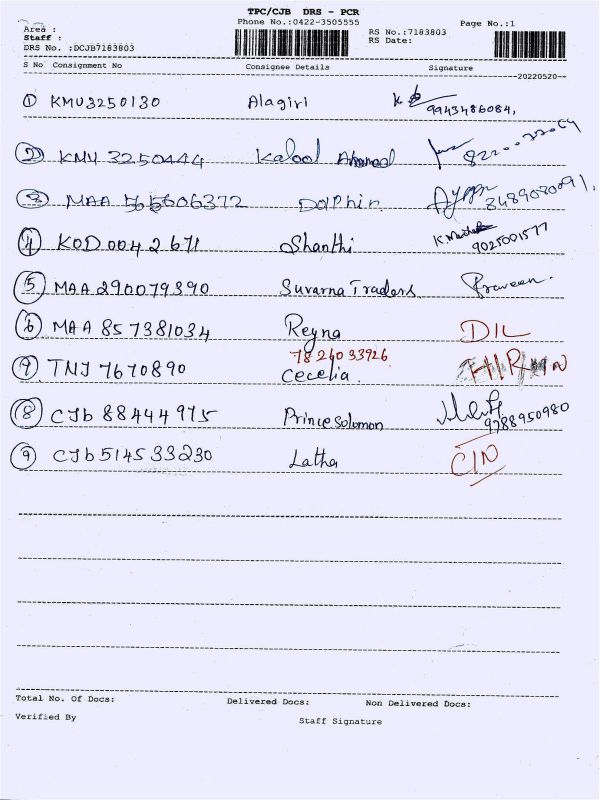 TPC/CJB DRS - PCR
Phone No.:0422-3505555 Page No.:1
Area :
Staff : RS No.:7183803
DRS No. :DCJB7183803 RS Date:
S No Consignment No Consignee Details Signature
--20220520--
1 KMU3250130 Alagiri 9943486084,
2 KMU 3250444 Kalool Ahamed
3 MAA 565606372 Dolphin 8489080091,
4 KOD 0042671 Shanthi 9025001577
5 MAA 290079390 Suvarna Traders Praveen.
6 MAA 857381034 Reyna DIL
7826033926
7 TNJ 7670890 Cecelia.
8 CJb 88444975 Prince Solomon 9788950980
9 CJb 514533230 Latha CIN
Total No. Of Docs: Delivered Docs: Non Delivered Docs:
Verified By Staff Signature